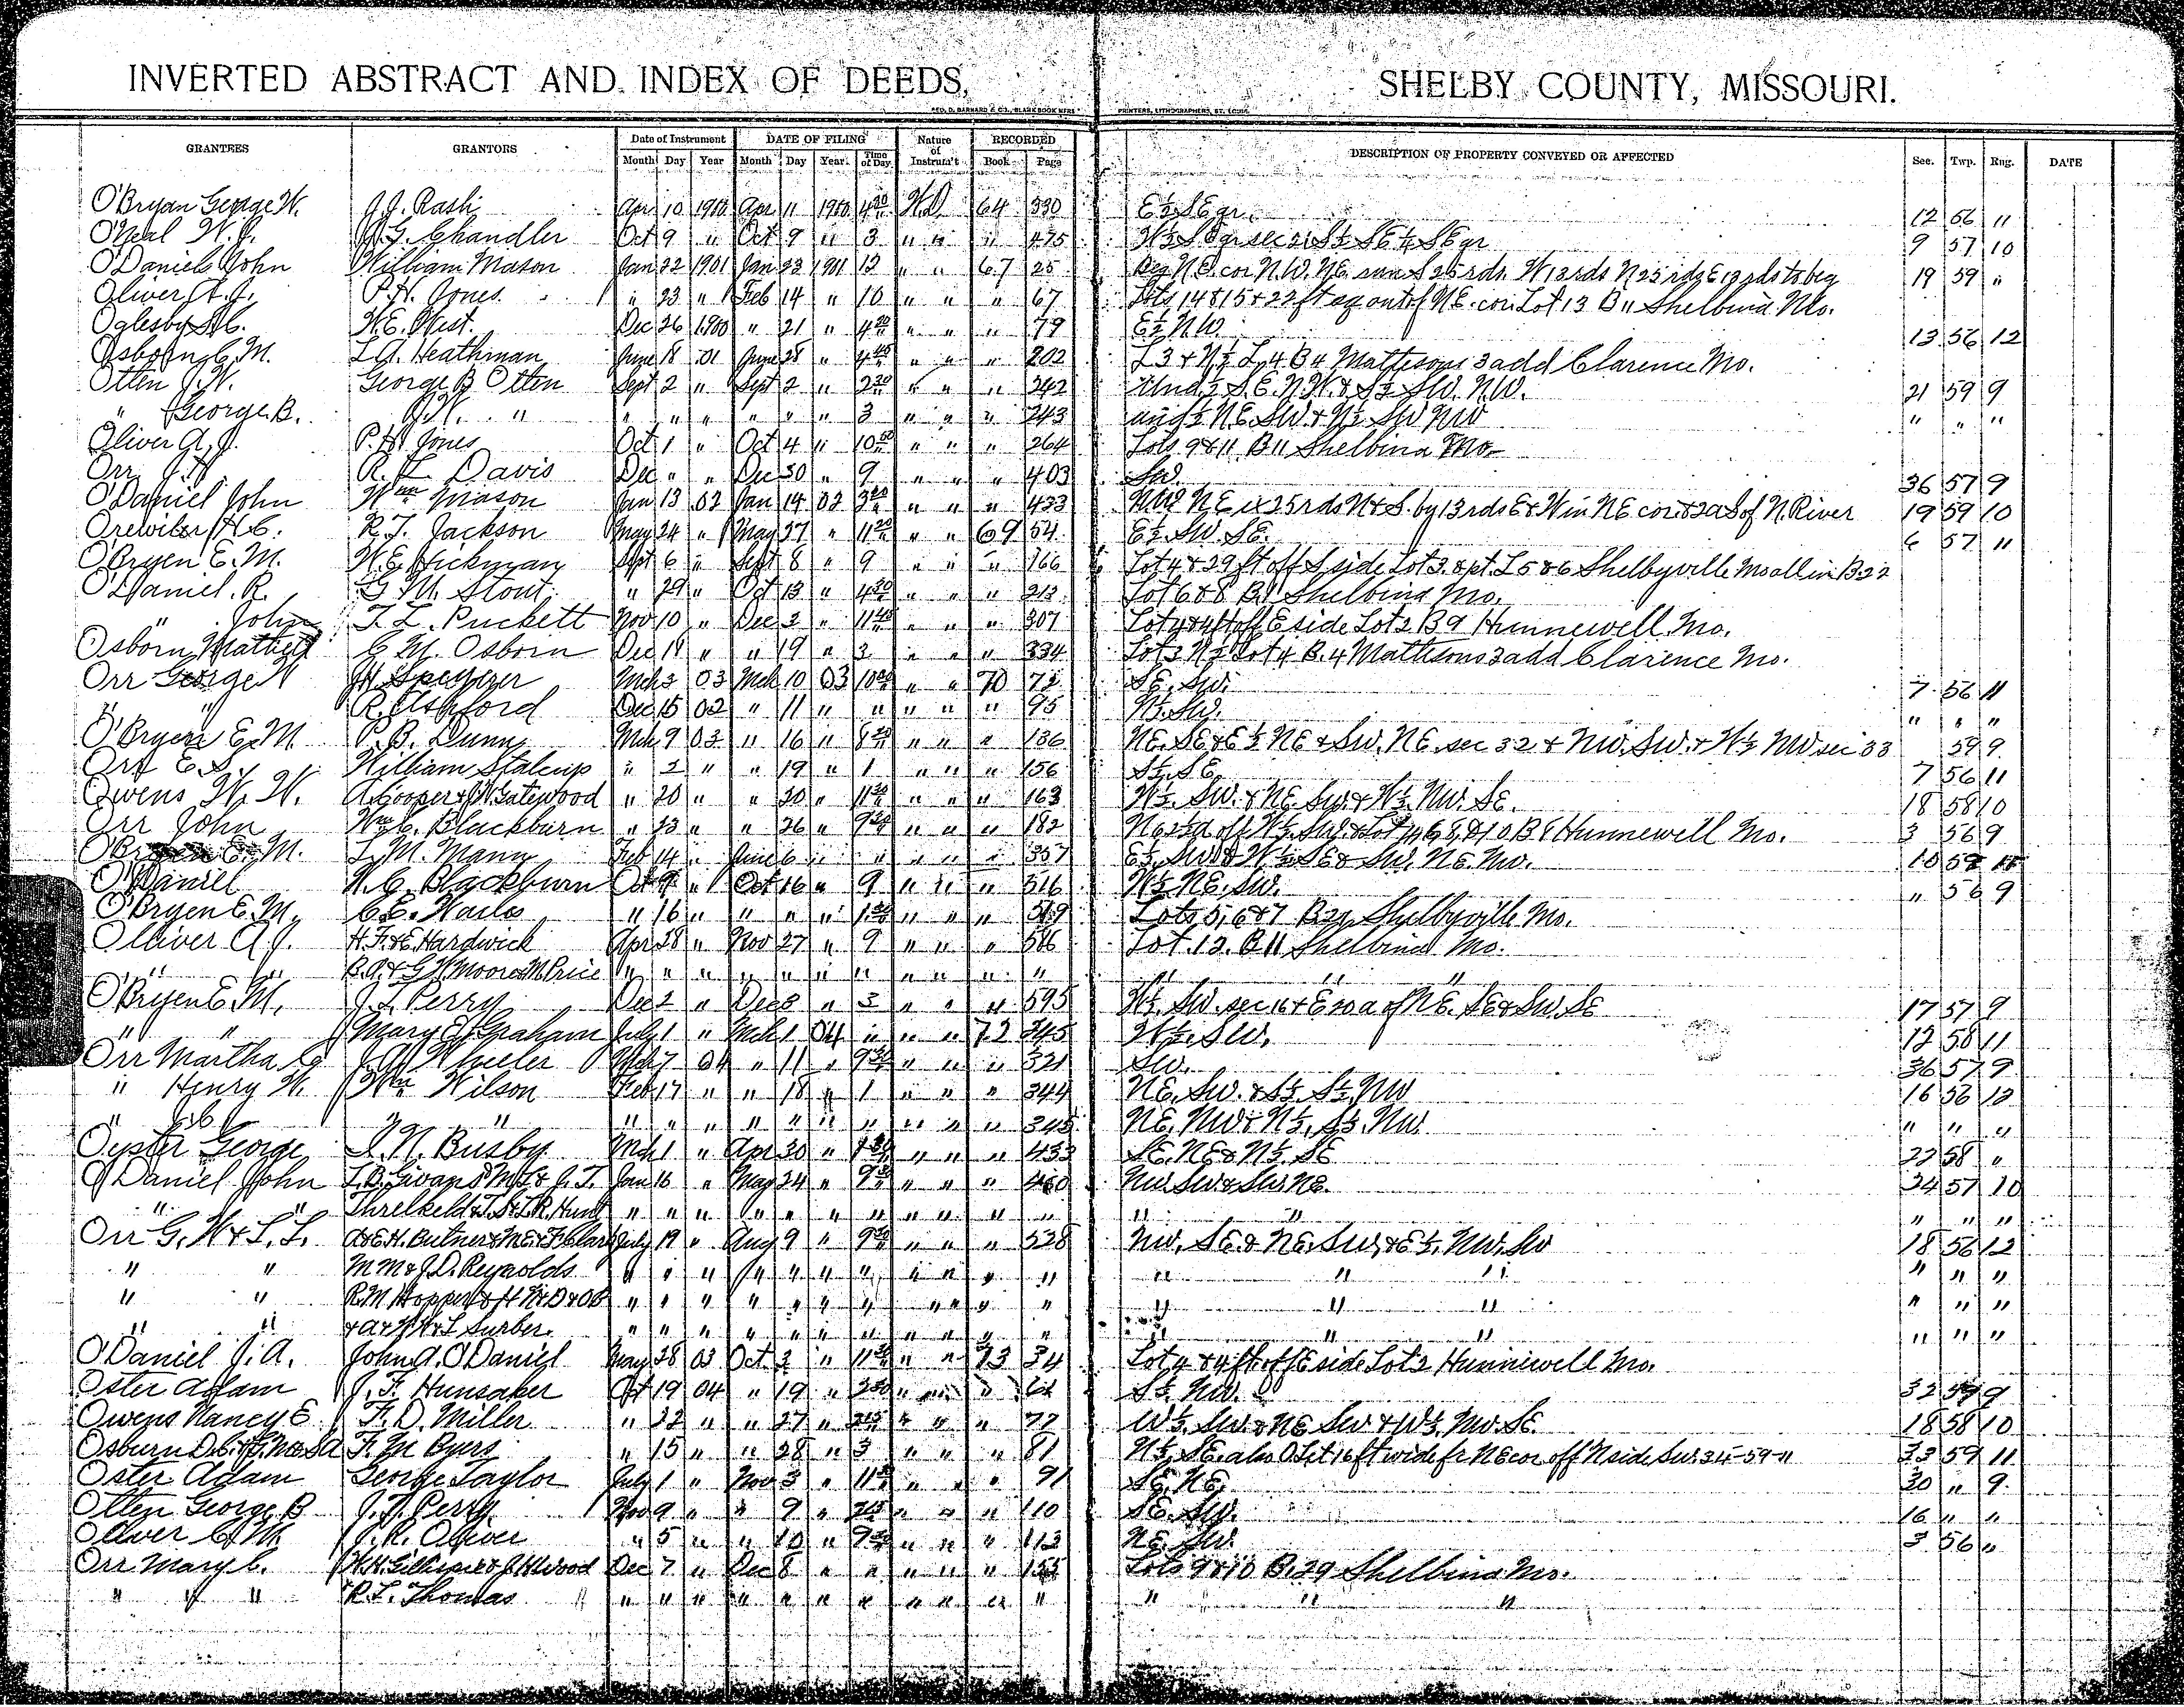 INVERTED ABSTRACT AND INDEX OF DEEDS, SHELBY COUNTY, MISSOURI.
GRANTEES GRANTORS Date of Instrument DATE OF FILING Nature of Instrum't RECORDED DESCRIPTION OF PROPERTY CONVEYED OR AFFECTED Sec. Twp. Rng. DATE
Month Day Year Month Day Year. Time of Day Book Page
O'Bryan George W. J.J. Rash Apr 10 1900 Apr 11 1900 W.D. 64 330 E½ SE qr. 12 56 11
O'Neal W.J. Chandler Oct 9 " Oct 9 " 3 " " " 475 9 57 10
O'Daniel John William Mason Jan 22 1901 Jan 23 1901 " " 67 25 Beg N.E. cor N.W. N.E. run S 25 rds. W 13 rds N 25 rds E 13 rds to beg 19 59 "
Oliver A.J. P.H. Jones " 23 " Feb 14 " 10 " " " 67 Lots 14 & 15 & 22 ft out of N.E. cor. Lot 13 B 11 Shelbina Mo.
Oglesby W.E. West. Dec 26 1900 " 21 " " " " 79 E½ NW 13 56 12
Osborn C.M. L.A. Heathman June 18 01 June 28 " " " " 202 L 3 & N½ L 4 B 4 Mattisons 3 add Clarence Mo.
Otten J.W. George B Otten Sept 2 " Sept 2 " 2 30 " " " 242 Und ½ S.E. N.W. & S½ SW. N.W. 21 59 9
" George B. J.W. " " " " " " " 3 " " " 243 und ½ NE. SW. & N½ SW NW " " "
Oliver A.J. P.H. Jones Oct 1 " Oct 4 " " " " 264 Lots 9 & 11 B 11 Shelbina Mo.
Orr R.L. Davis Dec " " Dec 30 " 9 " " " 403 SW. 36 57 9
O'Daniel John Wm Mason Jan 13 02 Jan 14 02 " " " 433 N.W. NE ex 25 rds N & S. by 13 rds E & W in NE cor. & 2a S of N. River 19 59 10
Orewiler H.C. R.T. Jackson May 24 " May 27 " " " 69 54 E½ SW. SE. 6 57 11
O'Bryen E.M. W.E. Hickman Sept 6 " Sept 8 " 9 " " " 166 Lot 4 & 29 ft off S side Lot 3. & pt. L 5 & 6 Shelbyville Mo all in B 22
O'Daniel. R. G.M. Stout " 29 " Oct 13 " " " " 213 Lot 6 & 8 Shelbina Mo.
" John T.L. Puckett Nov 10 " Dec 2 " " " " 307 Lot 4 & 4 ft off E side Lot 2 B 9 Hunnewell Mo.
Osborn C.M. Osborn Dec 19 " " 19 " 3 " " " 334 Lot 3 N½ Lot 4 B. 4 Mattisons 3 add Clarence Mo.
Orr George Mch 2 03 Mch 10 03 " " 70 72 SE. SW. 7 56 11
" " R. Ashford Dec 15 02 " 11 " " " " " 95 N½ SW. " " "
O'Bryen E.M. P.B. Dunn Mch 9 03 " 16 " " " " 136 NE. SE & E½ NE & SW. NE. sec 32 & NW. SW. & W½ NW sec 33 59 9
Orr E.S. William Stalcup " 2 " " 19 " 1 " " " 156 S½ SE. 7 56 11
Owens W.W. A. Cooper & W Gatewood " 20 " " 20 " " " " 163 W½ SW. & NE SW. & W½ NW. SE. 18 58 10
Orr John Wm C. Blackburn " 23 " " 26 " " " " 182 Hunnewell Mo. 3 56 9
E.M. L.M. Mann Feb 14 " June 6 " " " " " 357 E½ SW. & W½ SE & SW. NE. 10
O'Daniel W.C. Blackburn Oct 9 " Oct 16 " 9 " " " 516 W½ NE. SW. " 56 9
O'Bryen E.M. C.E. Wailes " 16 " " " " " " " Lots 5, 6 & 7 Shelbyville Mo.
Olliver A.J. H.F. & E. Hardwick Apr 28 " Nov 27 " 9 " " " 586 Lot. 12. B 11 Shelbina Mo.
" " B.A. & G.W. Moore & M. Price " " " " " " " " " " " " "
O'Bryen E.M. J.L. Perry Dec 2 " Dec 8 " 3 " " " 595 W½ SW. sec 16 & E 20 a of NE. SE & SW. SE 17 57 9
" " Mary E. Graham July 1 " Mch 1 04 " " " 72 245 W½ SW. 12 58 11
Orr Martha J.A. Wheeler Mch 7 04 " 11 " " " " 321 SW. 36 57 9
" Henry W. Wm Wilson Feb 17 " " 18 " 1 " " " 344 NE. SW. & S½ S½ NW 16 56 12
" " " " " " " " " " " " 345 NE. NW & N½ S½ NW. " " "
Oyster George Busby Mch 1 " Apr 30 " " " " 433 SE. NE & N½ SE 22 58 "
O'Daniel John L.B. Givans & M.L. & J.T. Jan 16 " May 24 " " " " NW. SW & SW NE. 24 57 10
" " Threlkeld & Hunt " " " " " " " " " " " " " " " "
Orr G.W. & L.L. A & E.H. Butner & M.E. & F. Clark July 19 " Aug 9 " " " " 528 NW. SE & NE. SW. & E½ NW. SW 18 56 12
" " M M & J.D. Reynolds " " " " " " " " " " " " " " " " "
" " R.M. Hopper " " " " " " " " " " " " " " " " "
" " Surber " " " " " " " " " " " " " " " "
O'Daniel J.A. John A. O'Daniel May 28 03 Oct 3 " " " 73 34 Lot 4 & 4 ft off E side Lot 2 Hunnewell Mo.
Oster Adam J.F. Hunsaker Oct 19 04 " 19 " " " " S½ NW. 32 59 9
Owens Nancy E F.D. Miller " 22 " " 27 " 2 15 " " " 77 W½ SW. & NE SW & W½ NW. SE. 18 58 10
Osburn F.M. Byers " 15 " " 28 " 3 " " " 81 N½ SE. also 16 ft wide fr NE cor off N side SW. 34-59-11 33 59 11
Oster Adam George Taylor July 1 " Nov 3 " " " " 91 SE. NE. 30 " 9
Otten George B J.T. Perry Nov 9 " " 9 " " " " 110 SE. SW. 16 " "
Oliver J.R. Oliver " 5 " " 10 " " " " 113 NE. SW. 3 56 "
Orr Mary C. W.H. Gillispie & J.H. Wood Dec 7 " Dec 8 " " " " " Lots 9 & 10 B. 29 Shelbina Mo.
" " " R.L. Thomas " " " " " " " " " " " " " "